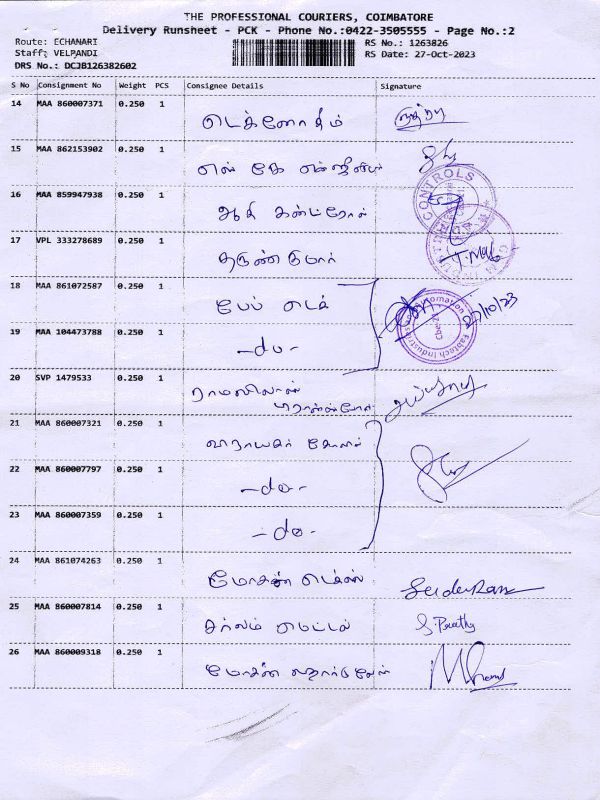 THE PROFESSIONAL COURIERS, COIMBATORE
Delivery Runsheet - PCK - Phone No.:0422-3505555 - Page No.:2
Route: ECHANARI
RS No.: 1263826
Staff: VELPANDI
RS Date: 27-Oct-2023
DRS No.: DCJB126382602
S No Consignment No Weight PCS Consignee Details Signature
14 MAA 860007371 0.250 1 டெக்னோதீம்
15 MAA 862153902 0.250 1 எஸ் கே
16 MAA 859947938 0.250 1 ஆதி கன்ட்ரோல்
CONTROLS
17 VPL 333278689 0.250 1 தருண்குமார்
18 MAA 861072587 0.250 1 பேப் டெக் 27/10/23
Fabtech Industries Automation
19 MAA 104473788 0.250 1 -do-
20 SVP 1479533 0.250 1 ராமவிலாஸ்
21 MAA 860007321 0.250 1
22 MAA 860007797 0.250 1 -do-
23 MAA 860007359 0.250 1 -do-
24 MAA 861074263 0.250 1 மோகன் டெக்ஸ்
25 MAA 860007814 0.250 1 மெட்டல்
26 MAA 860009318 0.250 1 மோகன்